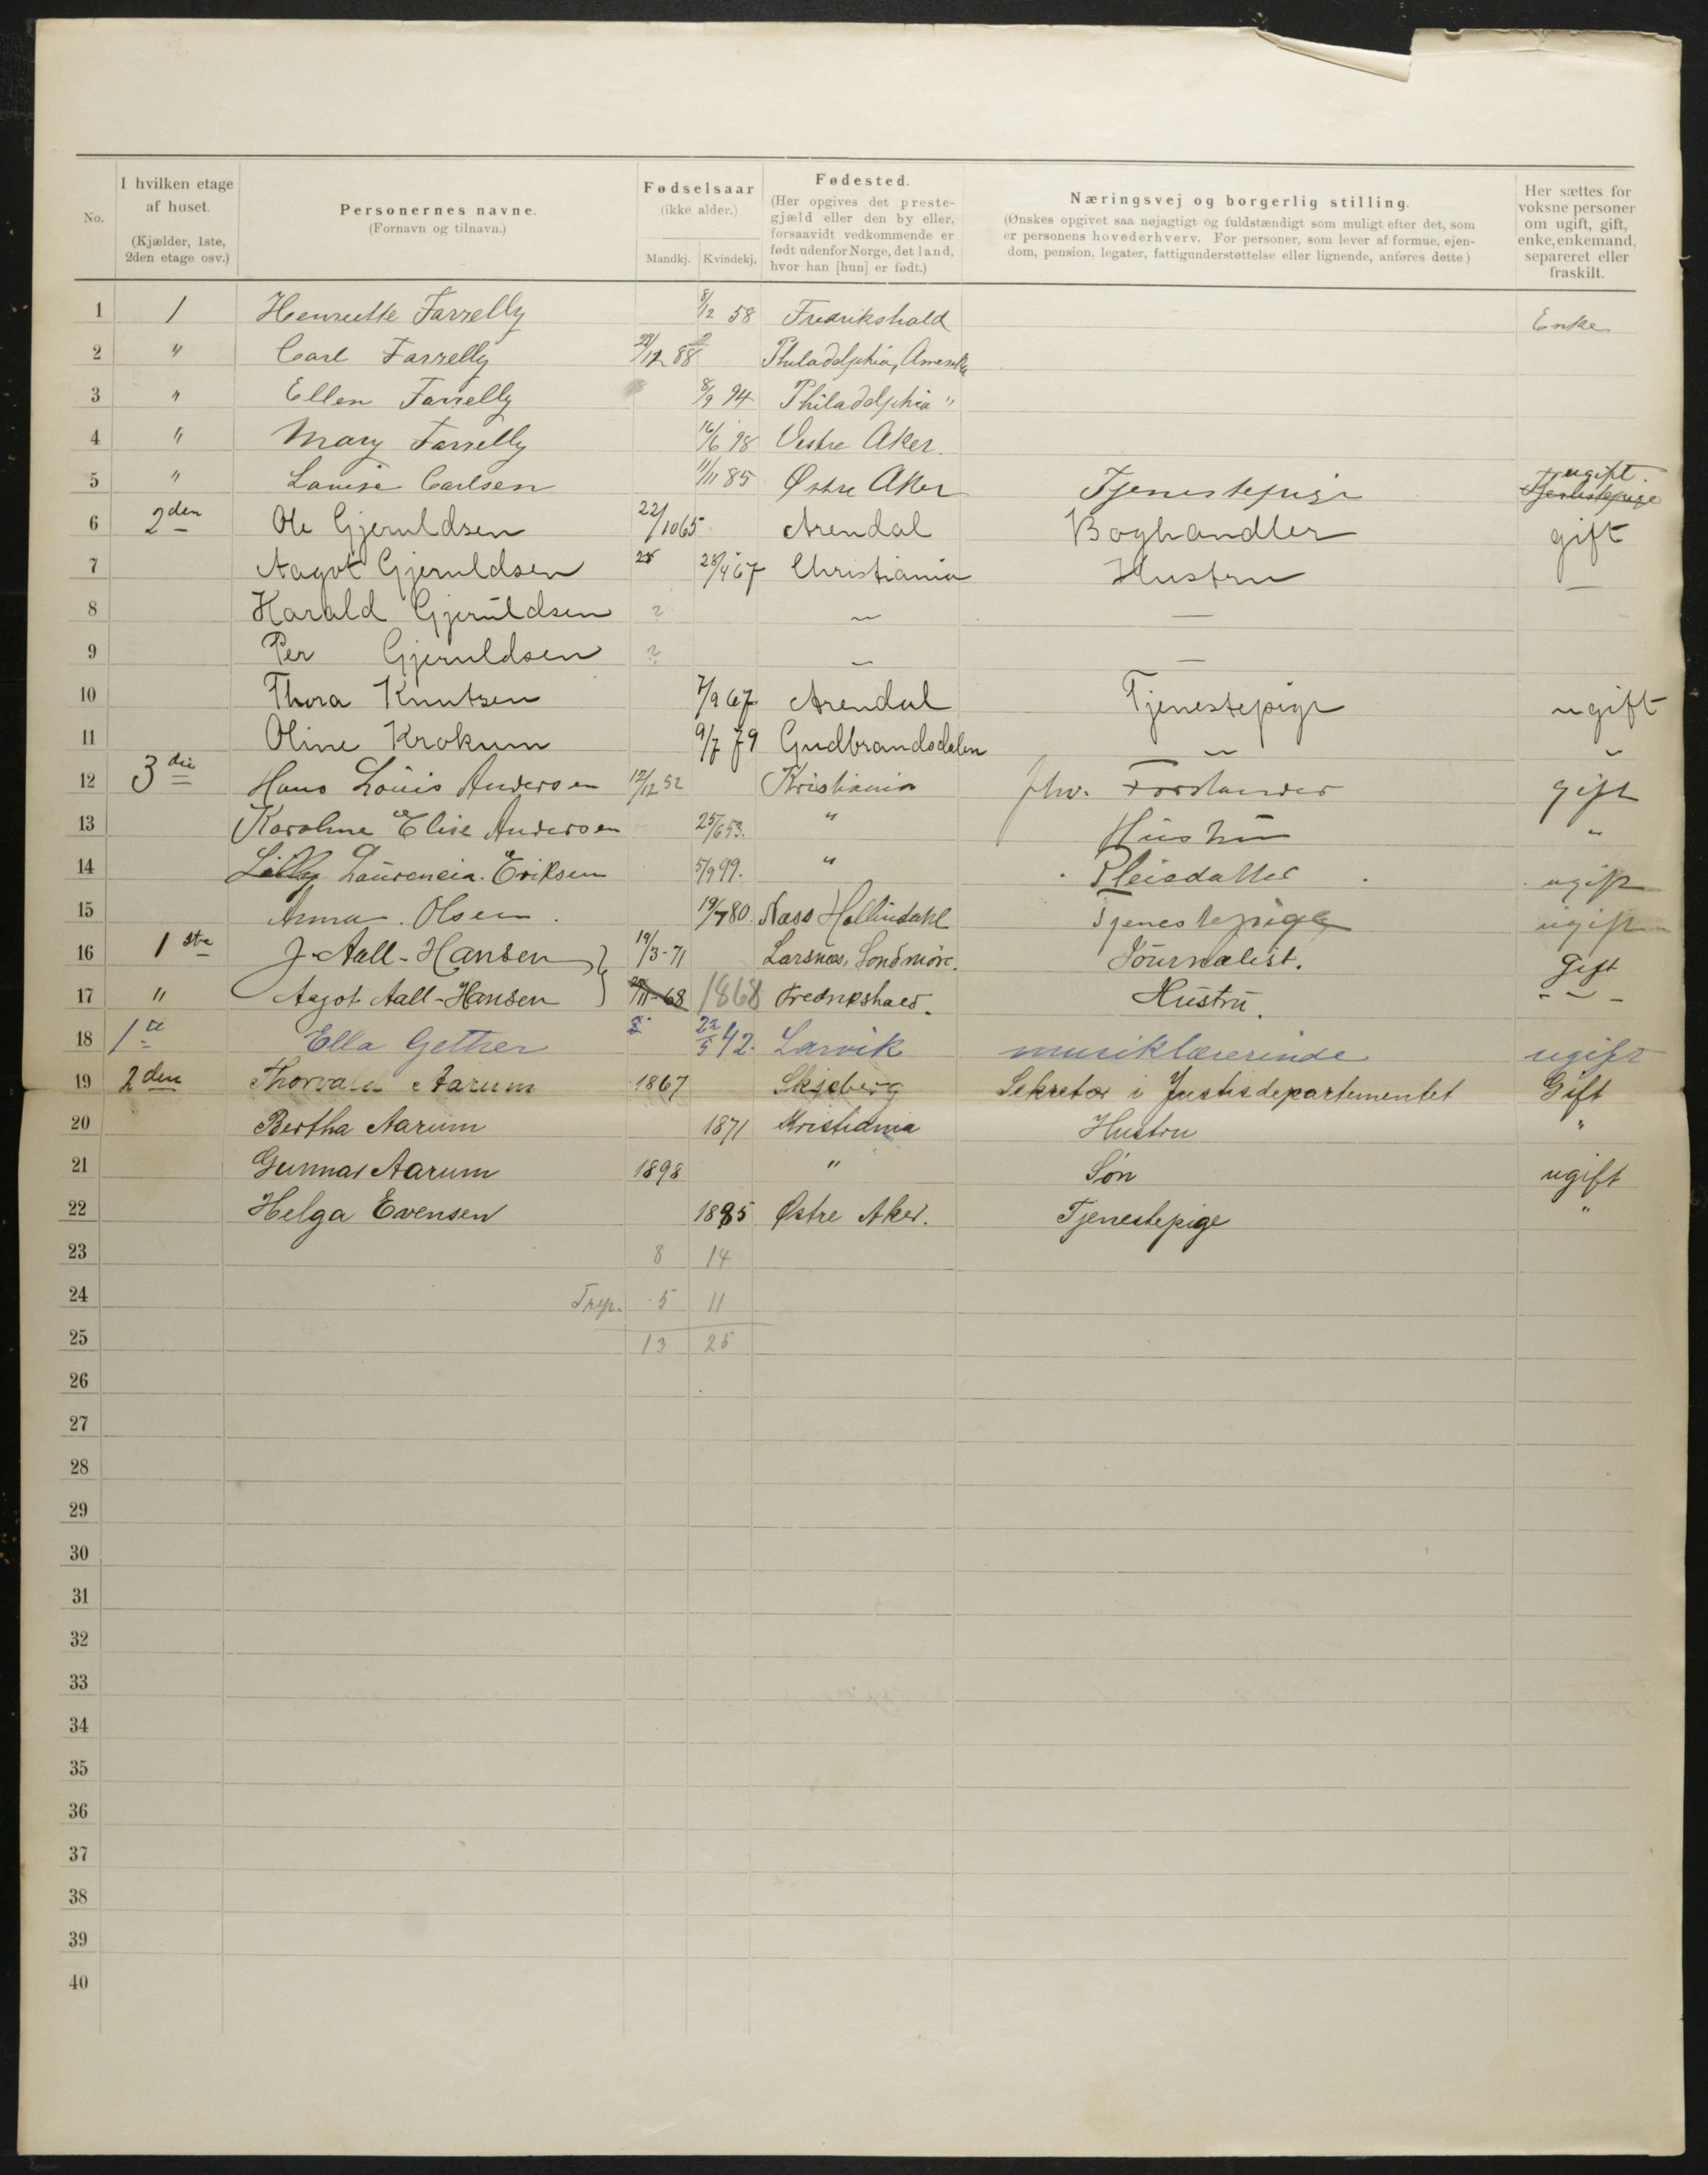 No.
I hvilken etage af huset.
(Kjælder, 1ste, 2den etage osv.)
Personernes navne.
(Fornavn og tilnavn.)
Fødselsaar
(ikke alder.)
Mandkj. Kvindekj.
Fødested.
(Her opgives det preste-
gjæld eller den by eller,
forsaavidt vedkommende er
født udenfor Norge, det land,
hvor han [hun] er født.)
Næringsvej og borgerlig stilling.
(Ønskes opgivet saa nøjagtigt og fuldstændigt som muligt efter det, som
er personens hovederhverv. For personer, som lever af formue, ejen-
dom, pension, legater, fattigunderstøttelse eller lignende, anføres dette)
Her sættes for
voksne personer
om ugift, gift,
enke, enkemand,
separeret eller
fraskilt.
1 1 Henriette Farrelly 8/12 58 Fredrikshald Enke
2 " Carl Farrelly 29/12 88 Philadelphia, Amerika
3 " Ellen Farrelly 8/9 94 Philadelphia "
4 " Mary Farrelly 16/6 98 Vestre Aker.
5 " Lovise Carlsen 11/11 85 Østre Aker Tjenestepige ugift. Tjenestepige
6 2den Ole Gjeruldsen 22/10 65 Arendal Boghandler gift
7 Aagot Gjeruldsen 28/4 67 Christiania Hustru —
8 Harald Gjeruldsen ? ~ —
9 Per Gjeruldsen ? ~ —
10 Thora Knutsen 7/9 67 Arendal Tjenestepige ugift
11 Oline Krokum 9/7 79 Gudbrandsdalen ~ ~
12 3die Hans Louis Andersen 12/12 52 Kristiania fhv. Forstander gift
13 Karoline Elise Andersen 25/6 53. " Hustru "
14 Lilly Laurencia. Eriksen 5/9 99. " Pleiedatter ugift
15 Anna. Olsen. 19/7 80. Næss Hallindahl Tjenestepige ugift
16 1ste J. Aall-Hansen 19/3-71 Larsnæs, Søndmøre. Journalist. Gift
17 " Aagot Aall-Hansen /11-68 1868 Fredrikshald. Hustru. - - -
18 1te Ella Gether 22/5 42. Larvik musiklærerinde ugift
19 2den Thorvald Aarum 1867 Skjeberg Sekretær i Justisdepartementet Gift
20 Bertha Aarum 1871 Kristiania Hustru "
21 Gunnar Aarum 1898 " Søn ugift
22 Helga Evensen 1885 Østre Aker. Tjenestepige "
23 8 14
24 5 11
25 13 25
26
27
28
29
30
31
32
33
34
35
36
37
38
39
40